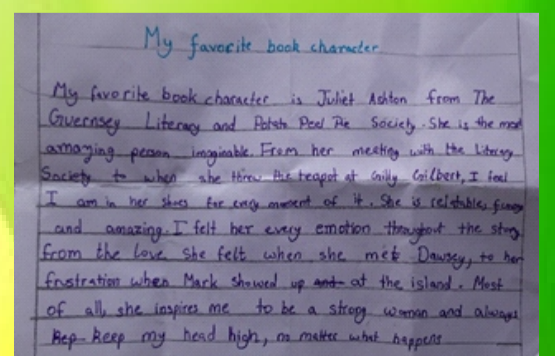 My favorite book character
My favorite book character is Juliet Ashton from The
Guernsey Literary and Potato Peel Pie Society. She is the most
amazing person imaginable. From her meeting with the Literary
Society to when she threw the teapot at Gilly Gilbert, I feel
I am in her shoes for every moment of it. She is relatable, funny
and amazing. I felt her every emotion throughout the story
from the love she felt when she met Dawsey, to her
frustration when Mark showed up at the island. Most
of all, she inspires me to be a strong woman and always
keep my head high, no matter what happens